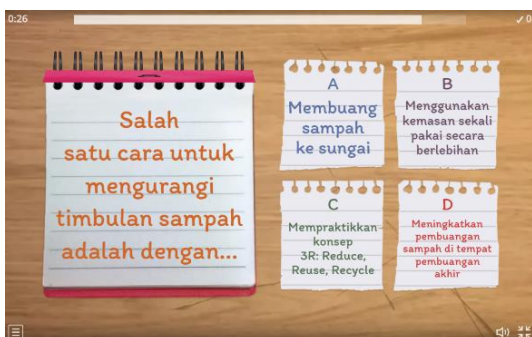 0:26
✓0
Salah
satu cara untuk
mengurangi
timbulan sampah
adalah dengan...
A
Membuang
sampah
ke sungai
B
Menggunakan
kemasan sekali
pakai secara
berlebihan
C
Mempraktikkan
konsep
3R: Reduce,
Reuse, Recycle
D
Meningkatkan
pembuangan
sampah di tempat
pembuangan
akhir